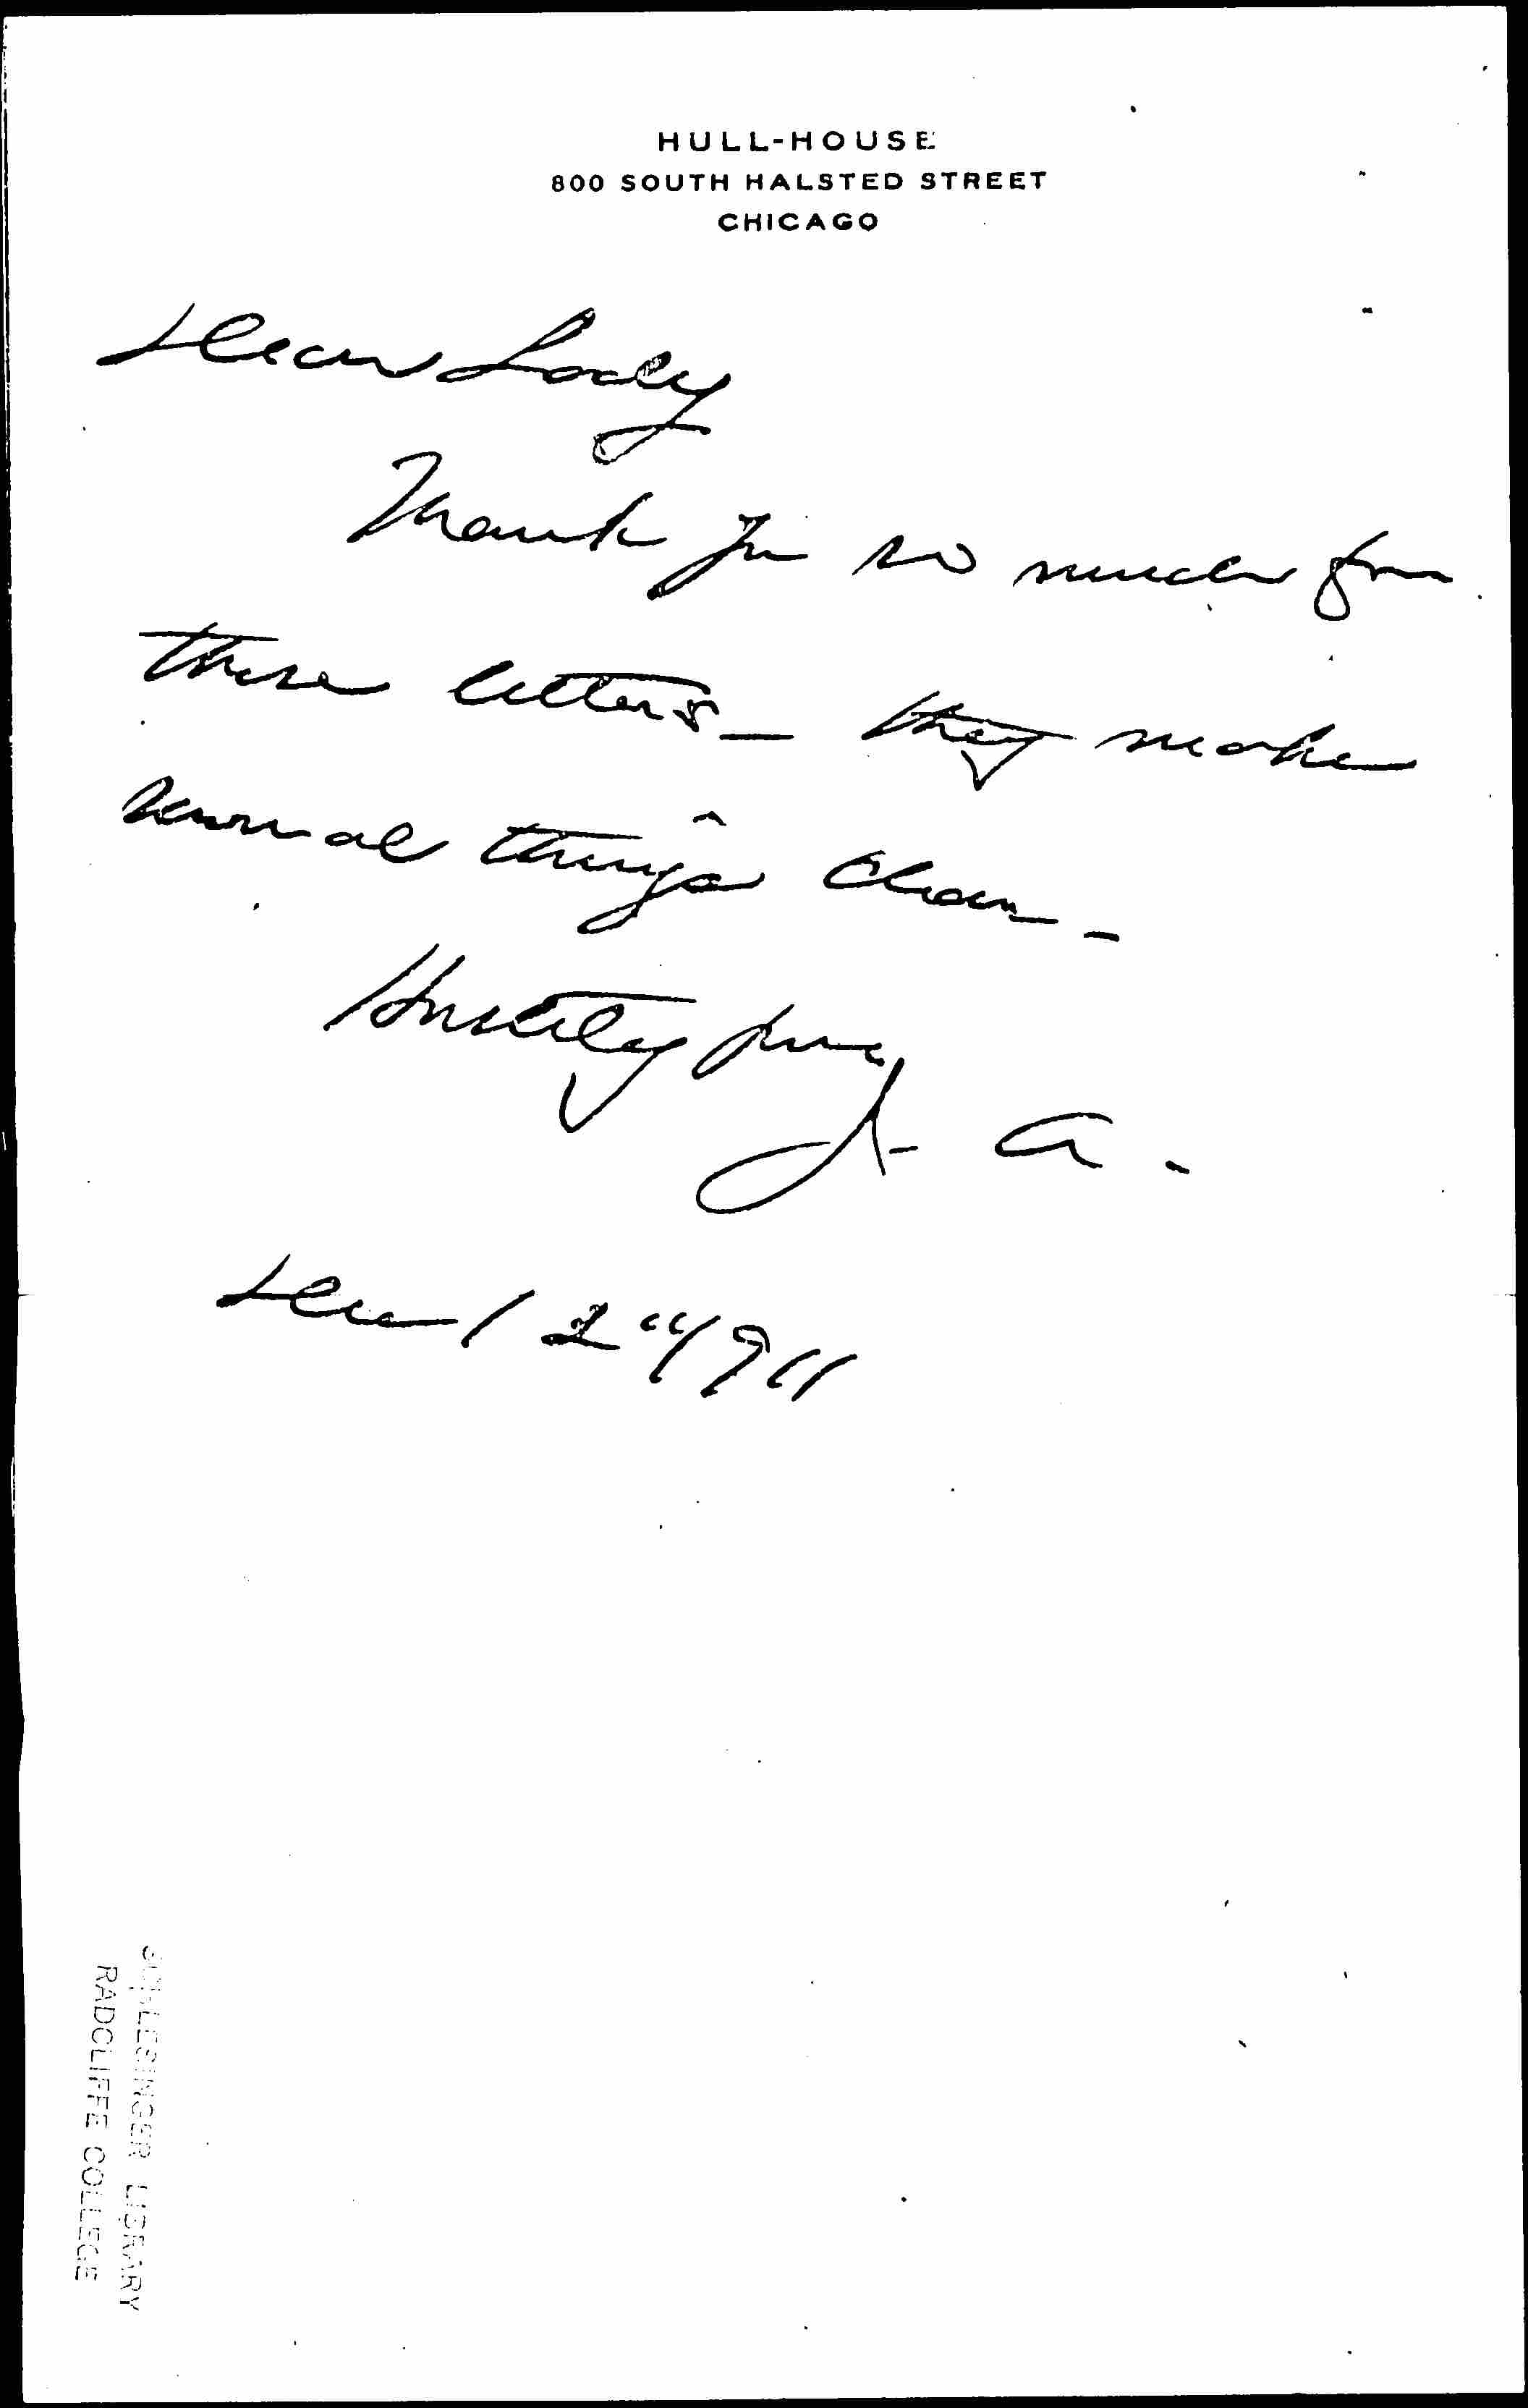 HULL-HOUSE
800 SOUTH HALSTED STREET
CHICAGO
Dear Lady
Thank you so much for
these letters — they make
several things clear —
Hastily yours
J. A.
Dec 12" 1911
SCHLESINGER LIBRARY
RADCLIFFE COLLEGE